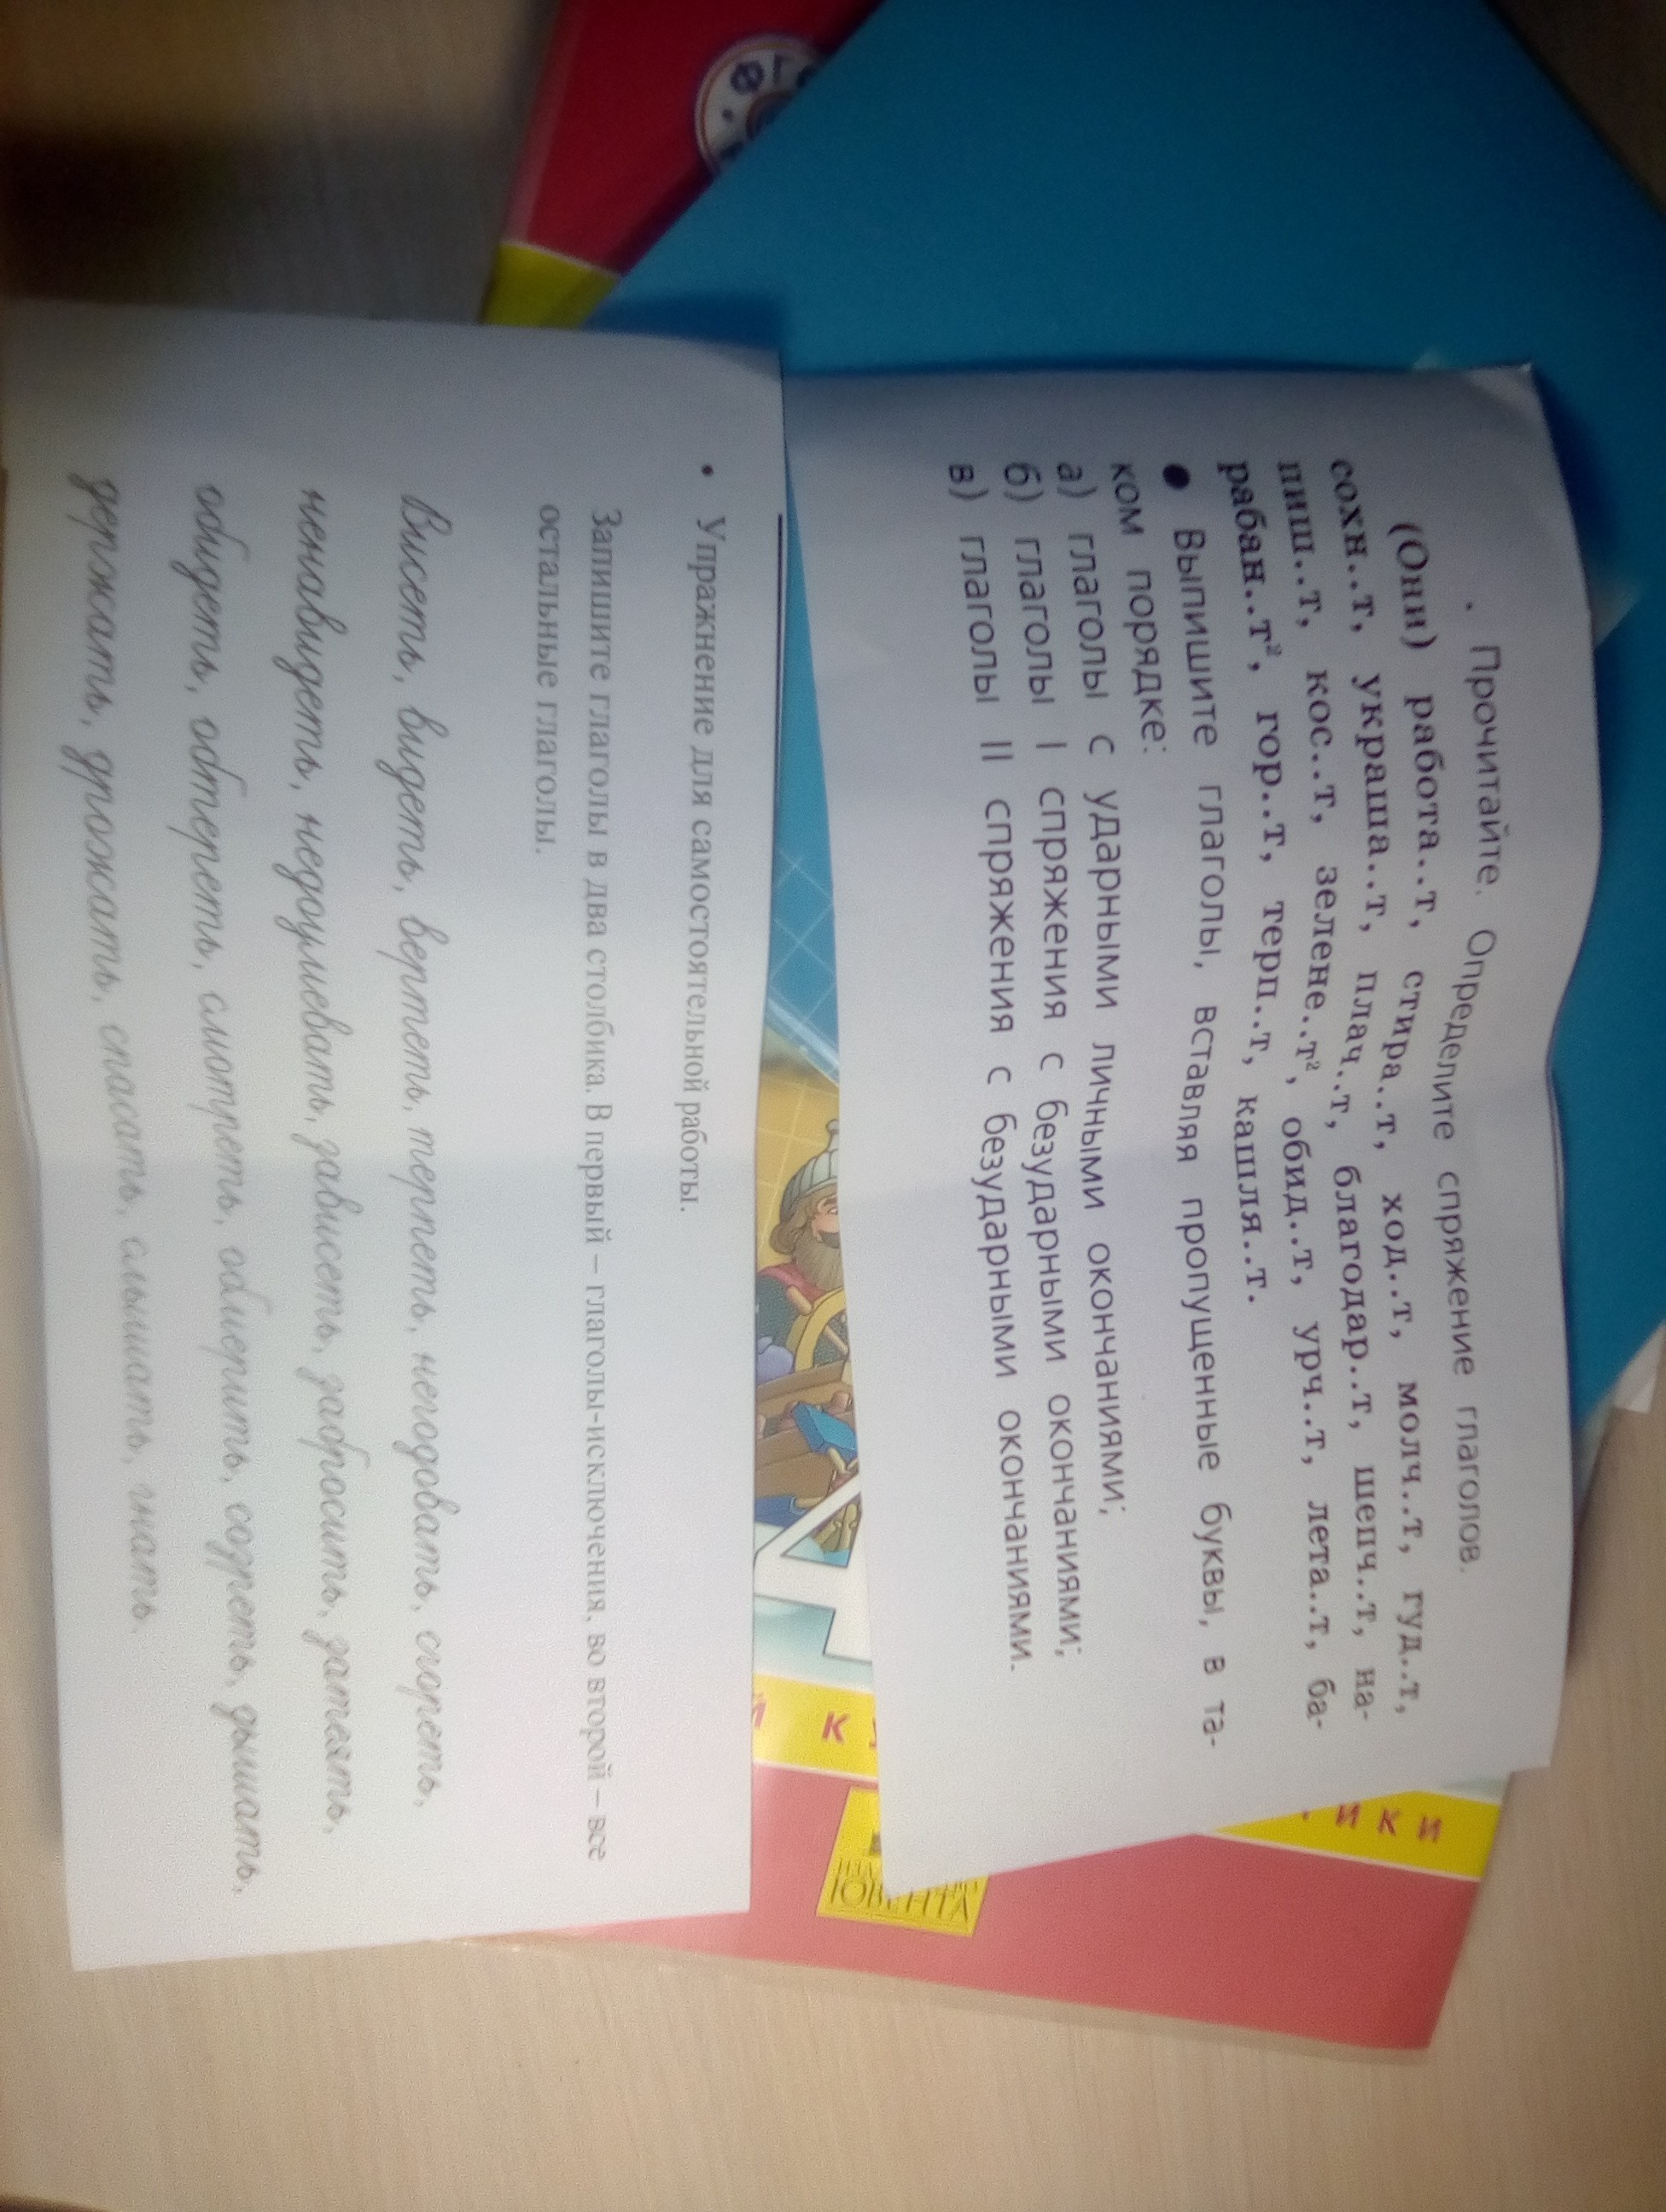 Прочитайте. Определите спряжение глаголов.
(Они) работа..т, стира..т, ход..т, молч..т, гуд..т,
сохн..т, украша..т, плач..т, благодар..т, шепч..т, на-
пиш..т, кос..т, зелене..т², обид..т, урч..т, лета..т, ба-
рабан..т², гор..т, терп..т, кашля..т.
● Выпишите глаголы, вставляя пропущенные буквы, в та-
ком порядке:
а) глаголы с ударными личными окончаниями;
б) глаголы I спряжения с безударными окончаниями;
в) глаголы II спряжения с безударными окончаниями.
• Упражнение для самостоятельной работы.
Запишите глаголы в два столбика. В первый – глаголы-исключения, во второй – все
остальные глаголы.
Висеть, видеть, вертеть, терпеть, негодовать, сгореть,
ненавидеть, недоумевать, зависеть, забросить, затеять,
обидеть, обтереть, смотреть, обмерить, согреть, дышать,
держать, дрожать, спасать, слышать, гнать.
К
ИКИ
ЮВЕНТА